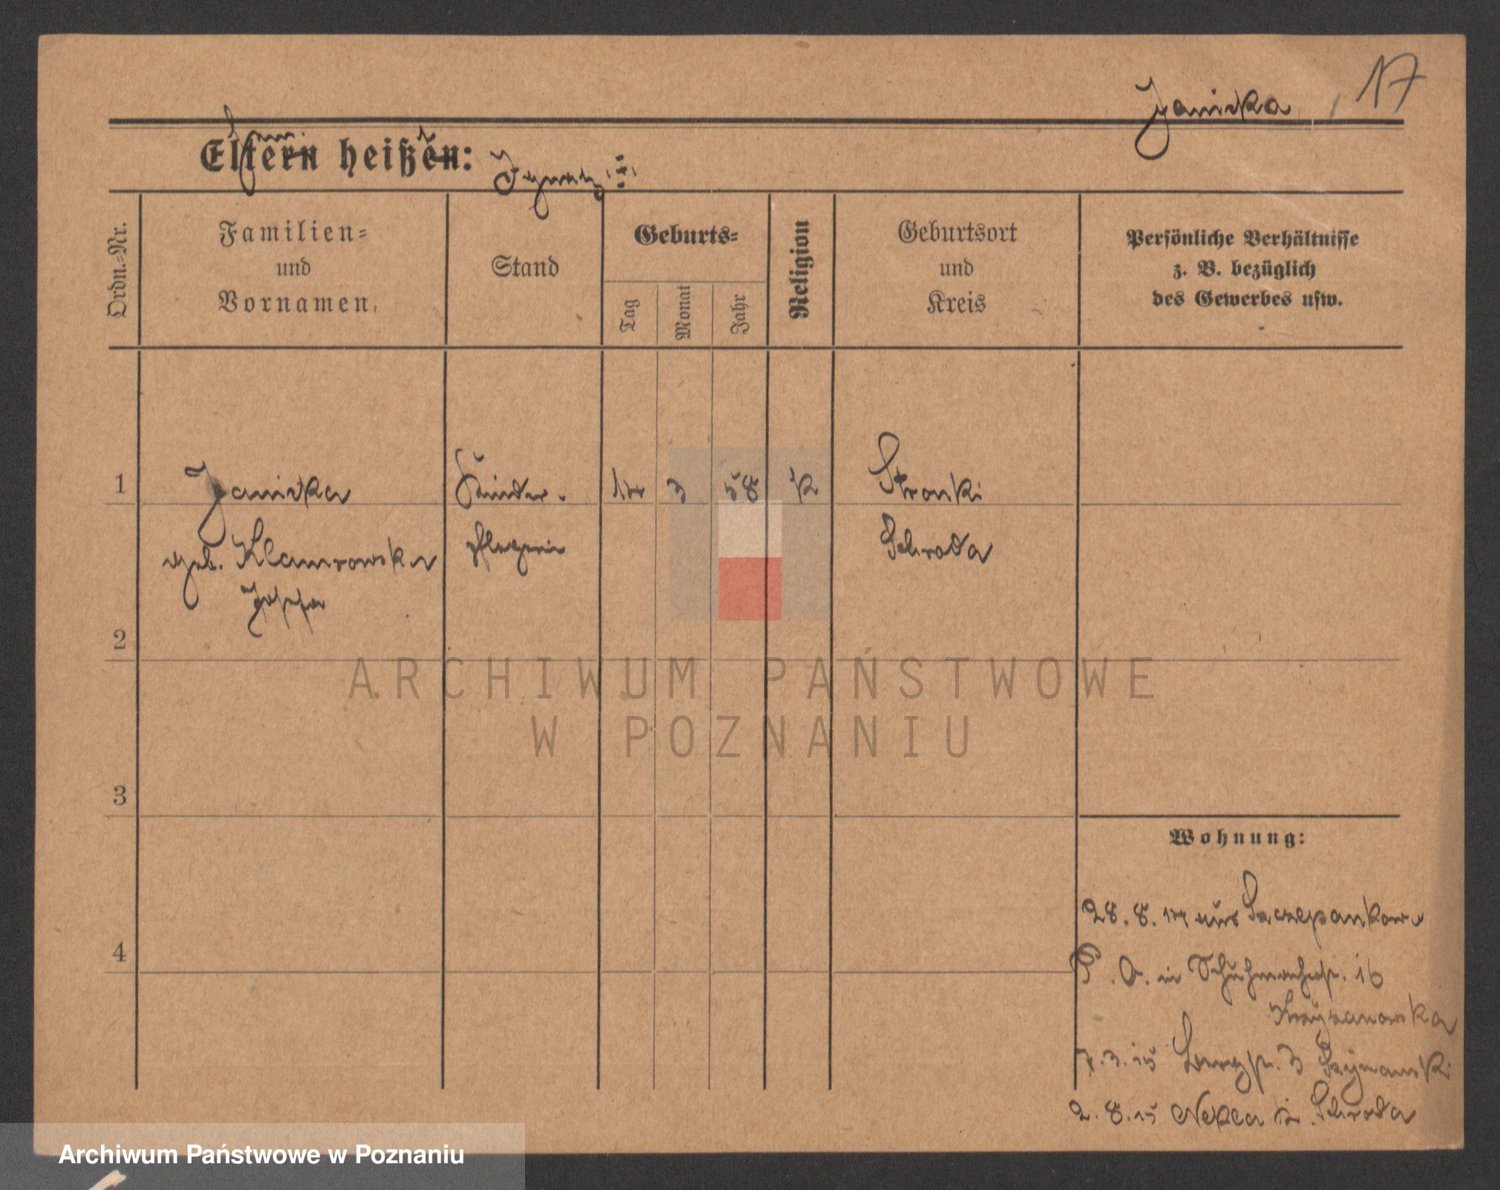 Janicka, 17
Eltern heißen: Ignatz
Ordn.-Nr.
Familien-
und
Vornamen,
Stand
Geburts-
Tag
Monat
Jahr
Religion
Geburtsort
und
Kreis
Persönliche Verhältnisse
z. B. bezüglich
des Gewerbes usw.
1
Janicka
geb.
Kinder-
pflegerin
14
3
58
k
Stronki
Schroda
2
ARCHIWUM PAŃSTWOWE
W POZNANIU
3
Wohnung:
4
28.8.14 aus Szczepankowo
P. O. in Schuhmacherstr. 16
Krzyzanowska
7.3.15 3 Szymanski
2.8.15 Nekla Kr. Schroda
Archiwum Państwowe w Poznaniu